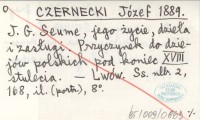 CZERNECKI Józef 1889.
J. G. Seume, jego życie, dzieła
i zasługi. Przyczynek do dzie-
jów polskich pod koniec XVIII
stulecia. — Lwów. Ss. nlb 2,
168, il. (portr.), 8°.